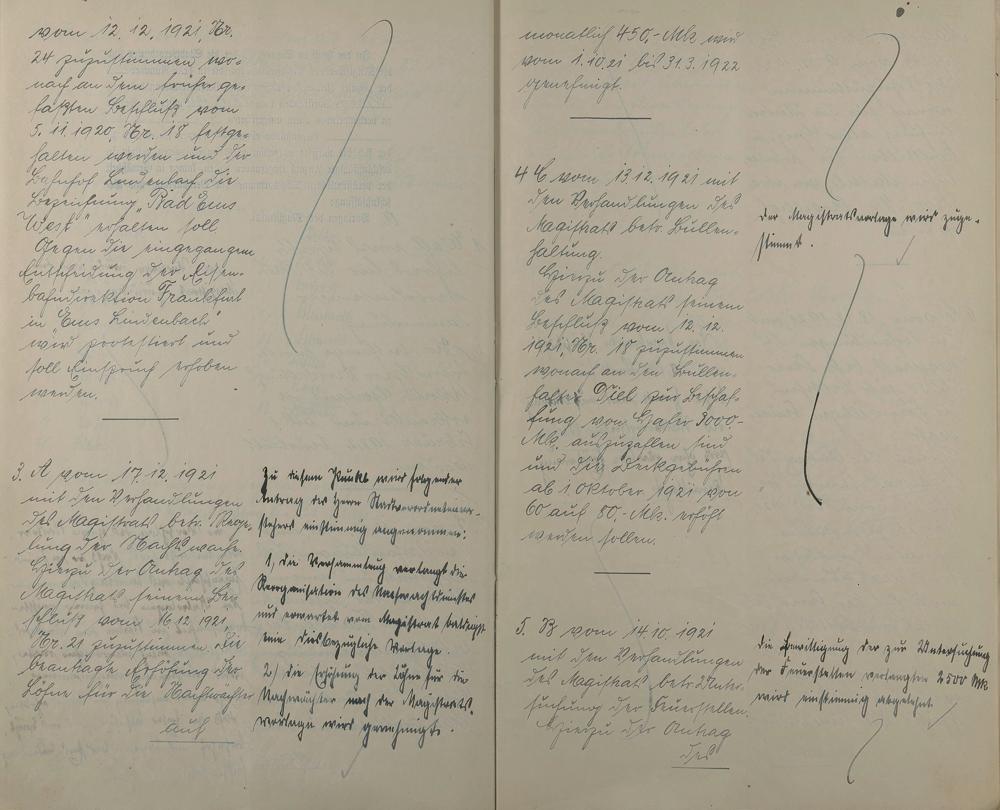 vom 12. 12. 1921, Nr.
24 zuzustimmen, wo-
nach an dem früher ge-
faßten Beschluß vom
5. 11. 1920, Nr. 18 festge-
halten werden und der
Bahnhof Lindenbach die
Bezeichnung „Bad Ems
West“ erhalten soll
Gegen die eingegangene
Entscheidung der Eisen-
bahndirektion Frankfurt
in „Ems Lindenbach“
wird protestiert und
soll Einspruch erhoben
werden.
3. A vom 17. 12. 1921
mit den Verhandlungen
des Magistrats betr. Rege-
lung der Nachtwache.
Hierzu der Antrag des
Magistrats seinem Be-
schluß vom 16 12 1921,
Nr. 21 zuzustimmen. Die
beantragte Erhöhung der
Löhne für die Nachtwächter
auf
Zu diesem Punkt wird folgender
Antrag des Herrn Stadtverordnetenvor-
stehers einstimmig angenommen:
1, die Versammlung verlangt die
Reorganisation des Nachtwachtdienstes
und erwartet vom Magistrat baldigst
eine diesbezügliche Vorlage.
2) die Erhöhung der Löhne für die
Nachtwächter nach der Magistrats-
vorlage wird genehmigt.
monatlich 450,- Mk wird
vom 1. 10. 21 bis 31. 3. 1922
genehmigt.
4 C vom 13. 12. 1921 mit
den Verhandlungen des
Magistrats betr. Bullen-
haltung.
Hierzu der Antrag
des Magistrats seinem
Beschluß vom 12. 12.
1921, Nr. 18 zuzustimmen
wonach an den Bullen-
halter Diel zur Beschaf-
fung von Hafer 3000-
Mk. auszuzahlen sind
und die Deckgebühren
ab 1. Oktober 1921 von
60 auf 80,- Mk. erhöht
werden sollen.
der Magistratsvorlage wird zuge-
stimmt.
5. B vom 14. 10. 1921
mit den Verhandlungen
des Magistrats betr. Unter-
suchung der Feuerstellen.
Hierzu der Antrag
des
die Bewilligung der zur Untersuchung
der Feuerstätten verlangten 2500 Mk
wird einstimmig abgelehnt